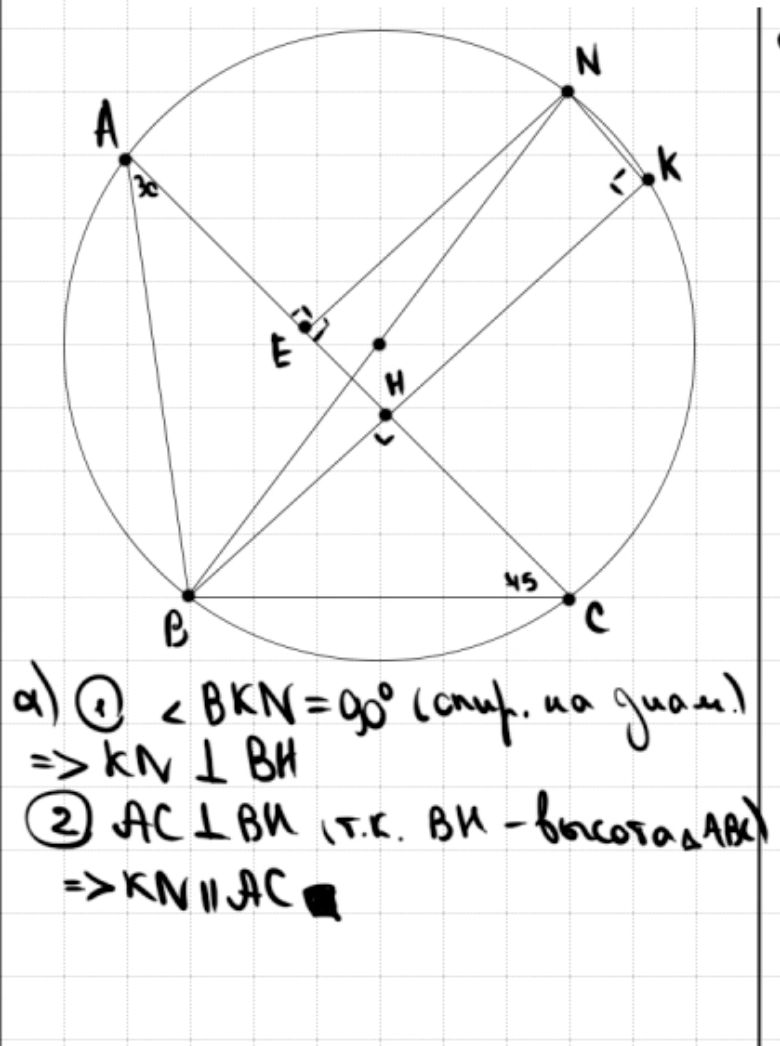 N
A
K
30
E
H
45
B
C
а) ① < BKN = 90° (опир. на диам.)
=> KN ⊥ BH
② AC ⊥ BH (т.к. BH - высота △ ABC)
=> KN || AC ■